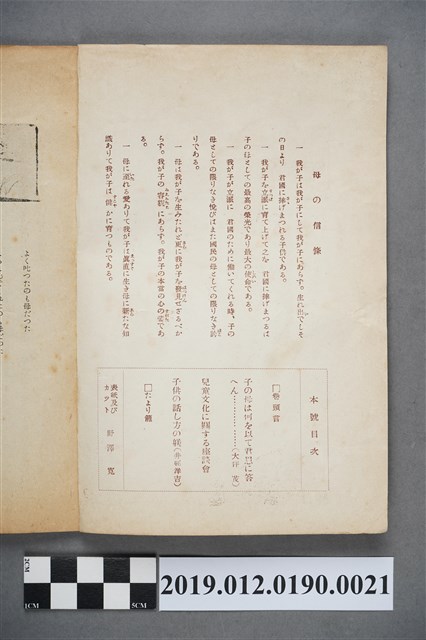 母の信條
一　我が子は我が子にして我が子にあらず。生れ出でしそ
の日より　君國に捧げまつれる子供である。
一　我が子を立派に育て上げて之を　君國に捧げまつるは
子の母としての最高の榮光であり最大の使命である。
一　我が子が立派に　君國のために働いてくれる時、子の
母としての限りなき悦びはまた國民の母としての限りなき誇
りである。
一　母は我が子を生みたれど更に我が子を發見せざるべか
らず。我が子の容貌にあらず。我が子の本當の心の姿であ
る。
一　母に溢れる愛ありて我が子は眞直に生き母に新たな知
識ありて我が子は健かに育つものである。
本號目次
□卷頭言
子の母は何を以て君國に答
へん…………(大坪
兒童文化に關する座談會
子供の話し方の躾
□たより欄
表紙及び
カット　野澤　寬
よく叱つたのも母だつた
2CM
1CM
5CM
2019.012.0190.0021